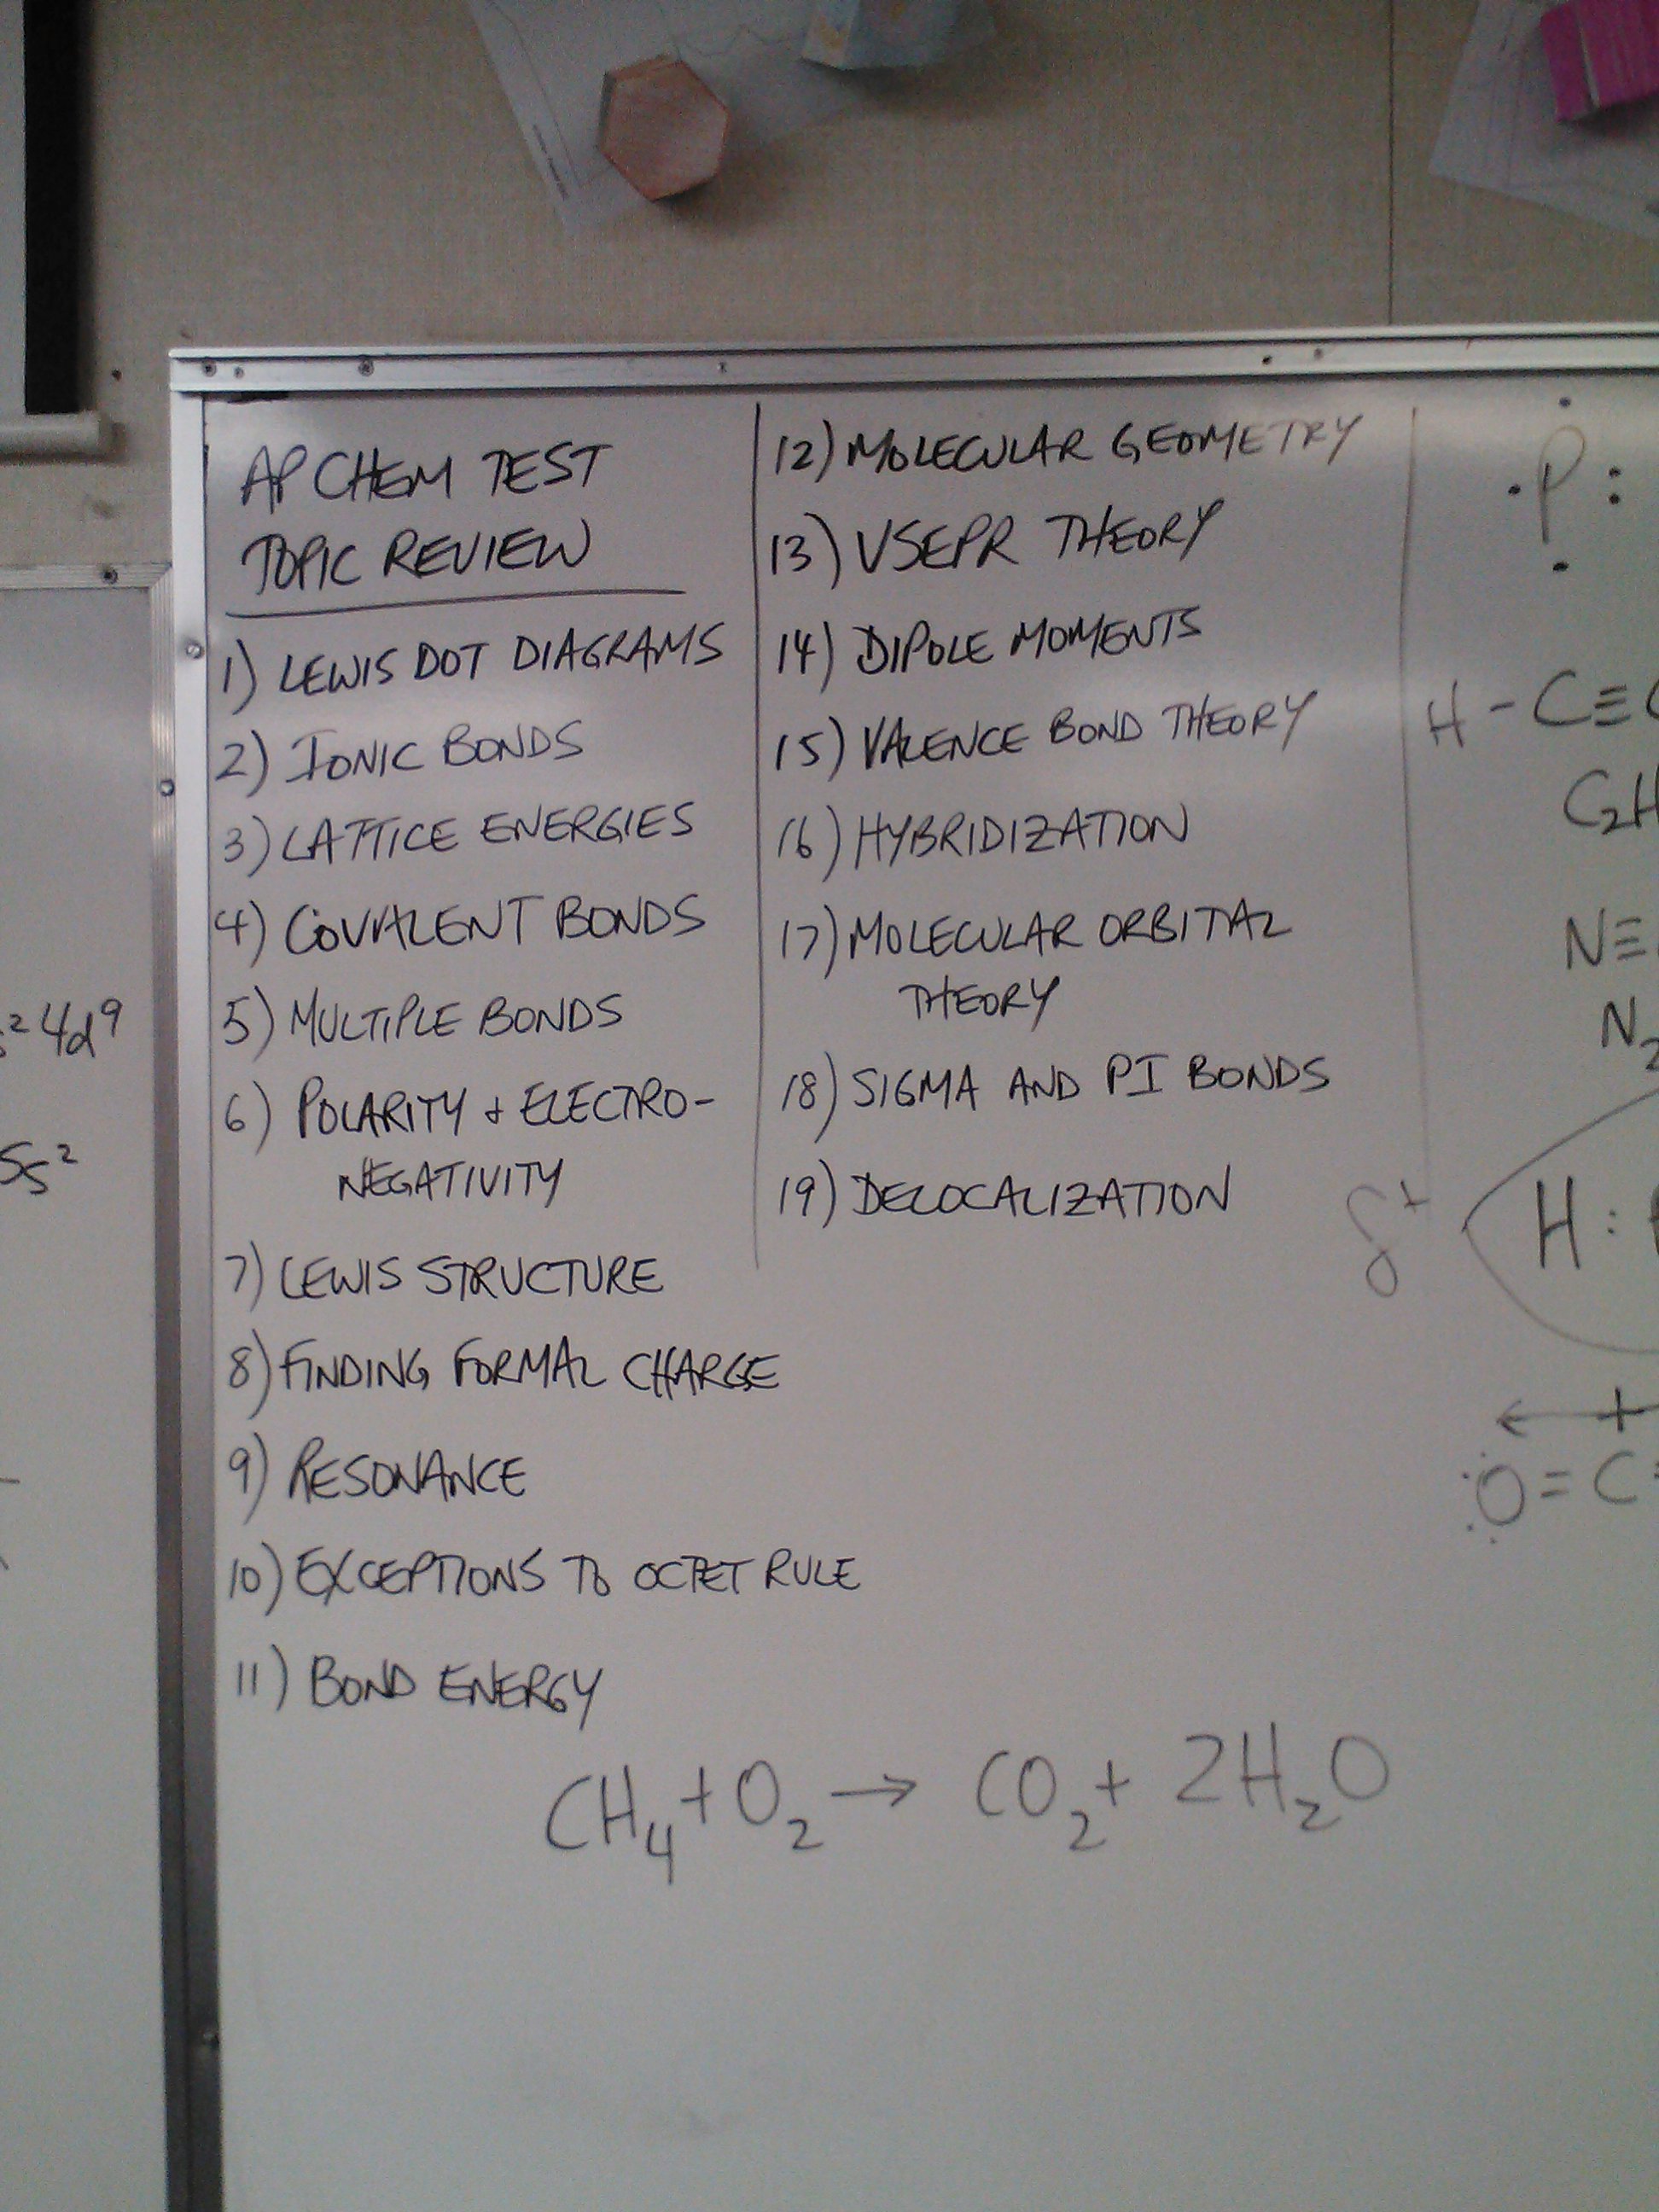 AP CHEM TEST
TOPIC REVIEW
1) LEWIS DOT DIAGRAMS
2) IONIC BONDS
3) LATTICE ENERGIES
4) COVALENT BONDS
5) MULTIPLE BONDS
6) POLARITY & ELECTRO-
NEGATIVITY
7) LEWIS STRUCTURE
8) FINDING FORMAL CHARGE
9) RESONANCE
10) EXCEPTIONS TO OCTET RULE
11) BOND ENERGY
CH₄ + O₂ → CO₂ + 2H₂O
12) MOLECULAR GEOMETRY
13) VSEPR THEORY
14) DIPOLE MOMENTS
15) VALENCE BOND THEORY
16) HYBRIDIZATION
17) MOLECULAR ORBITAL
THEORY
18) SIGMA AND PI BONDS
19) DELOCALIZATION
·P:
H-C≡C
C₂H
N≡
N₂
δ+
H:
O=C
² 4d⁹
5s²